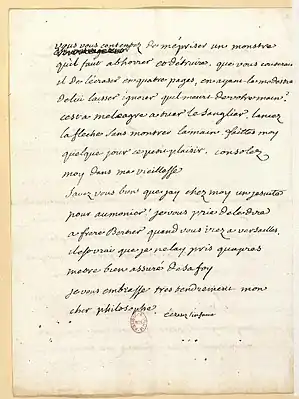 vous vous contentez de mépriser un monstre
quil faut abhorrer et détruire. que vous couterait
il de lécraser en quatre pages, en ayant la modestie
de lui laisser ignorer quil meurt de votre main?
cest a meleagre a tuer le sanglier, lancez
la fleche sans montrer la main. faittes moy
quelque jour ce petit plaisir. consolez
moy dans ma vieillesse
savez vous bien que jay chez moy un jesuite
pour aumonier? je vous prie de le dire
a frere Berier quand vous irez a versailles,
il est vray que je ne lay pris quapres
mettre bien assuré de sa foy
je vous embrasse tres tendrement mon
cher philosophe
écrasez linfame